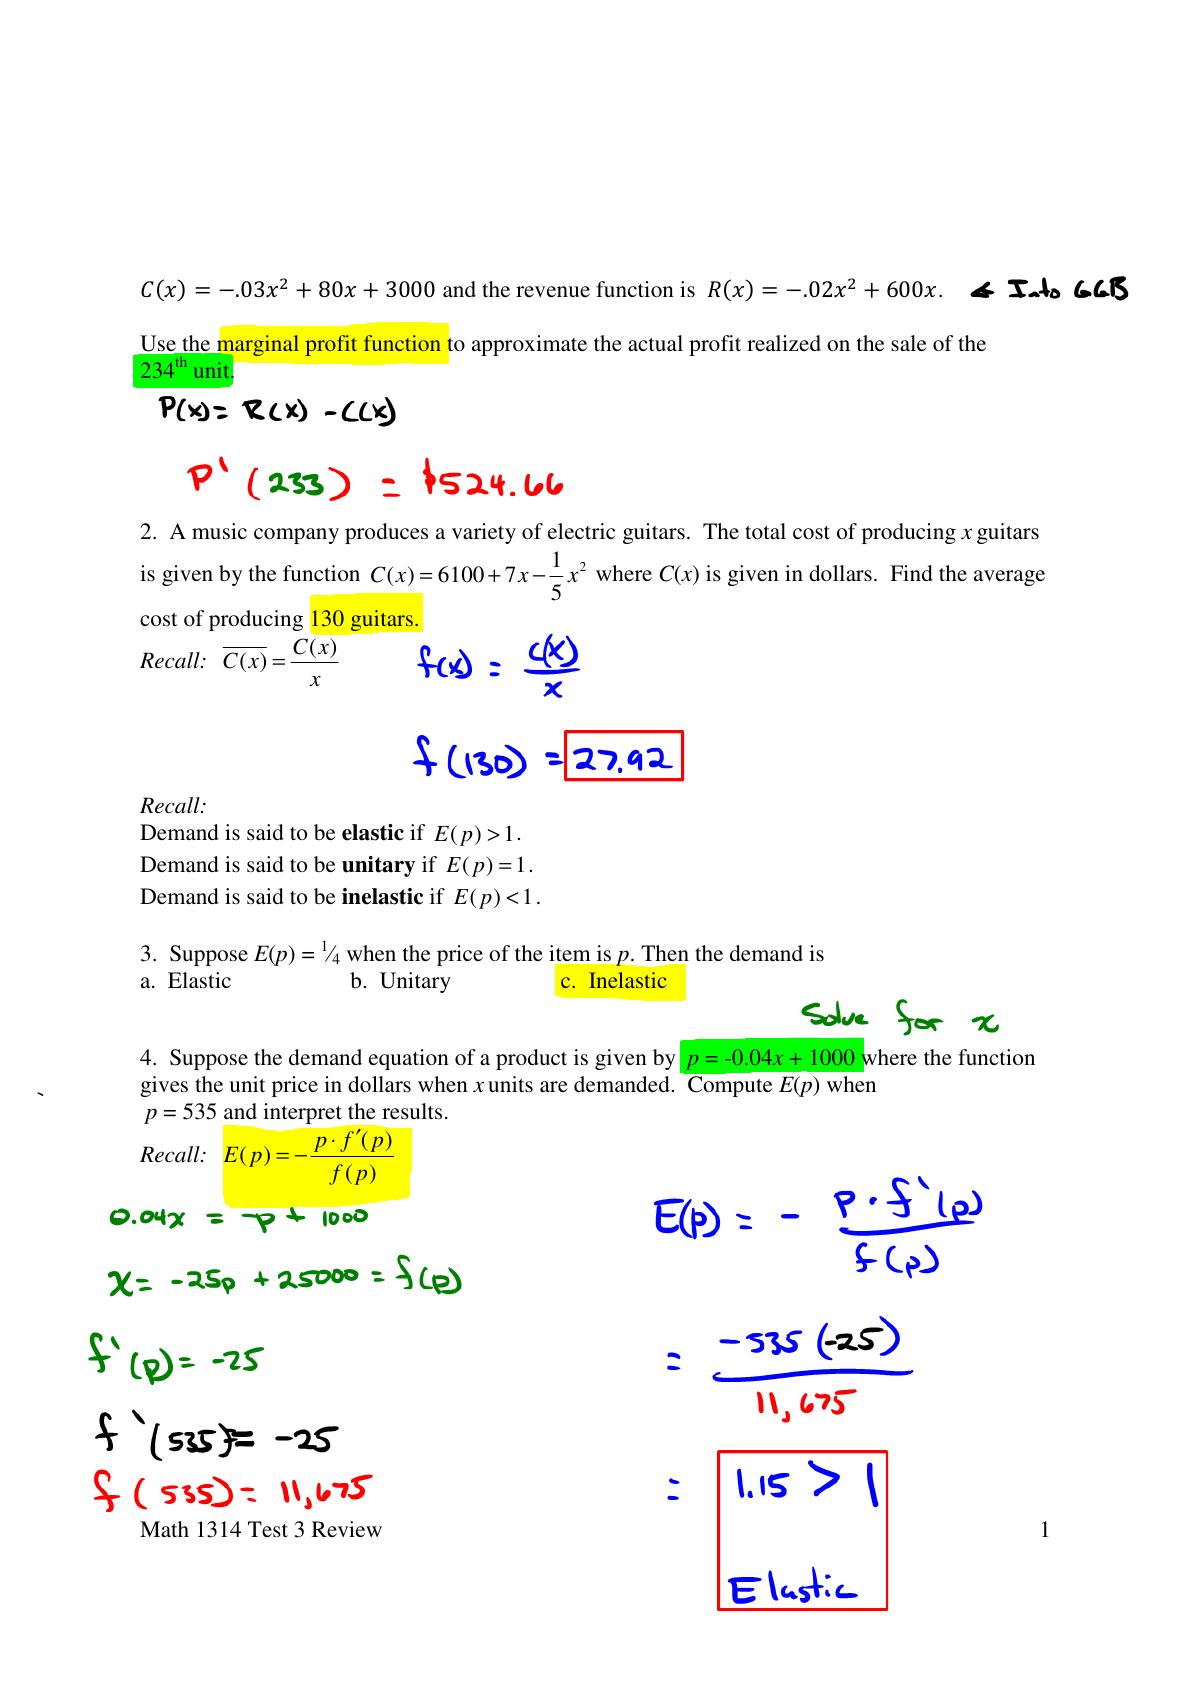 C(x) = −.03x² + 80x + 3000 and the revenue function is R(x) = −.02x² + 600x. ← Into GGB
Use the marginal profit function to approximate the actual profit realized on the sale of the
234th unit.
P(x) = R(x) - C(x)
P'(233) = $524.66
2. A music company produces a variety of electric guitars. The total cost of producing x guitars
is given by the function C(x) = 6100 + 7x − 1/5 x² where C(x) is given in dollars. Find the average
cost of producing 130 guitars.
Recall: C̅(̅x̅)̅ = C(x)/x
f(x) = C(x)/x
f(130) = 27.92
Recall:
Demand is said to be elastic if E(p) > 1.
Demand is said to be unitary if E(p) = 1.
Demand is said to be inelastic if E(p) < 1.
3. Suppose E(p) = ¼ when the price of the item is p. Then the demand is
a. Elastic b. Unitary c. Inelastic
Solve for x
4. Suppose the demand equation of a product is given by p = -0.04x + 1000 where the function
gives the unit price in dollars when x units are demanded. Compute E(p) when
p = 535 and interpret the results.
Recall: E(p) = − p · f′(p) / f(p)
0.04x = -p + 1000
x = -25p + 25000 = f(p)
f'(p) = -25
f'(535) = -25
f(535) = 11,675
E(p) = - p · f'(p) / f(p)
= -535 (-25) / 11,675
= 1.15 > 1
Elastic
Math 1314 Test 3 Review 1